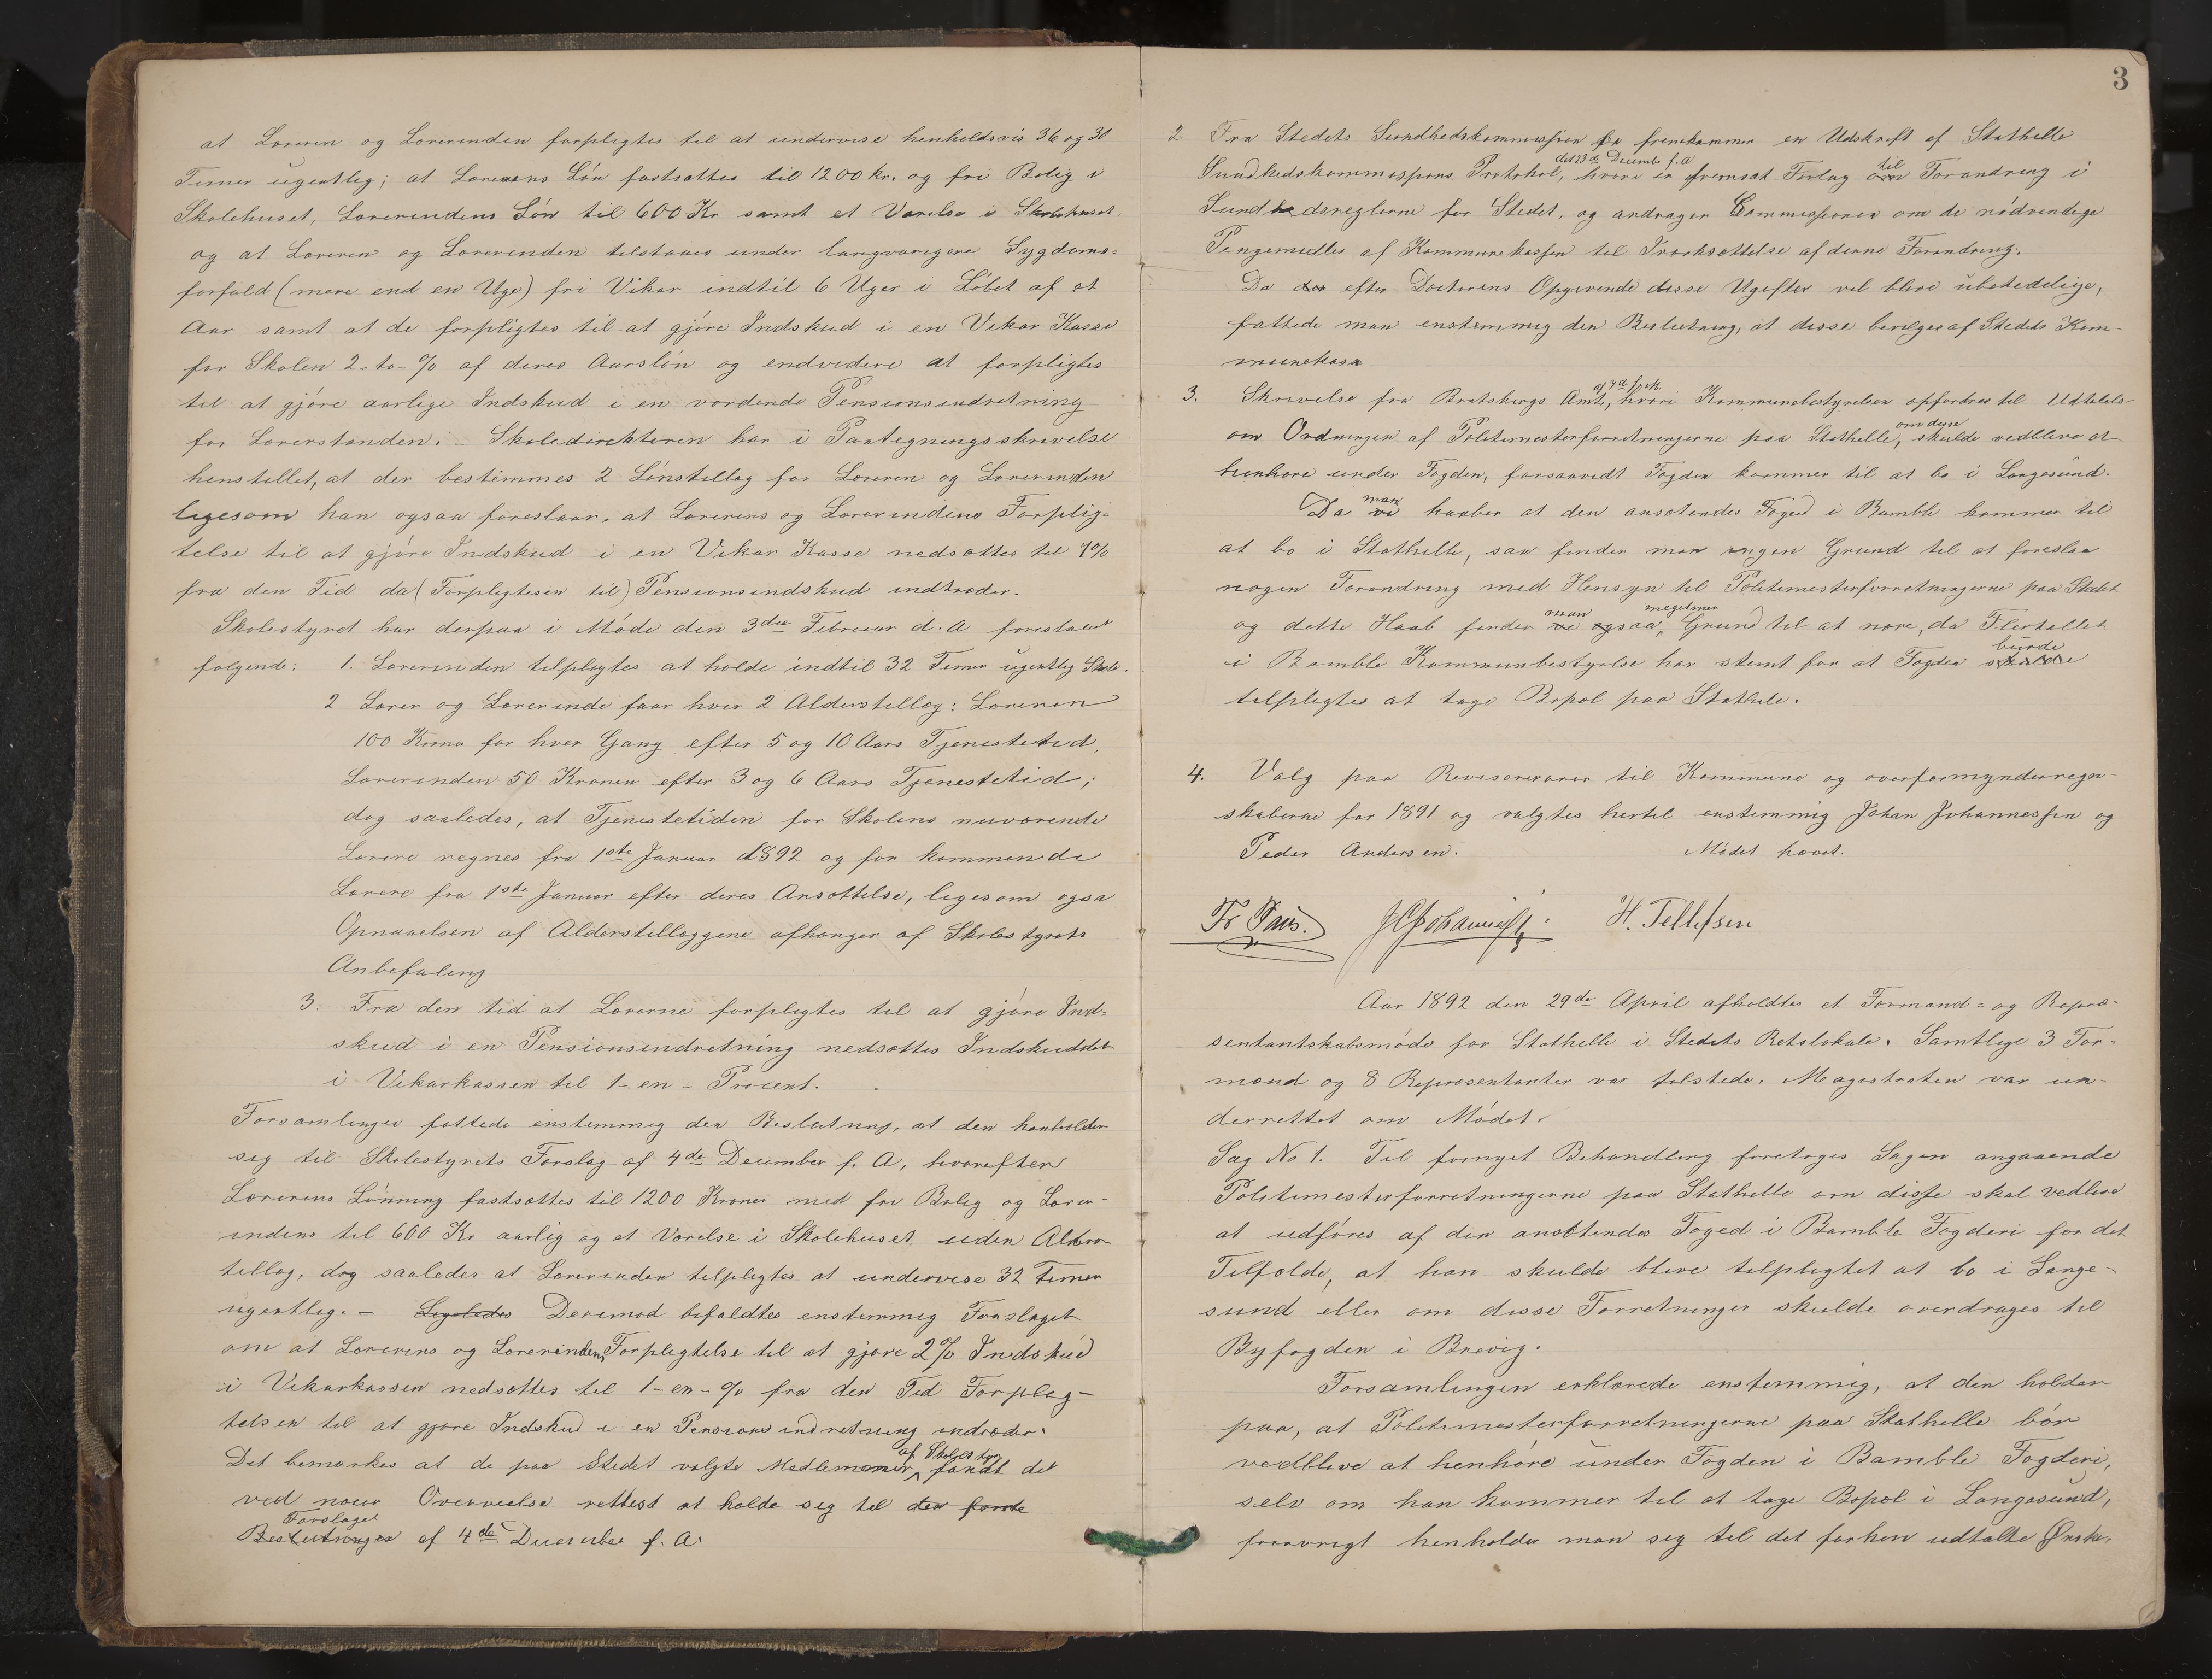 at Læreren og Lærerinden forpligtes til at undervise henholdsvis 36 og 30
Timer ugentlig; at Lærerens Løn fastsættes til 1200 kr. og fri Bolig i
Skolehuset, Lærerindens Løn til 600 Kr samt et Værelse i Skolehuset,
og at Læreren og Lærerinden tilstaaes under langvarigere Sygdoms=
forfald (mere end en Uge) fri Vikar indtil 6 Uger i Løbet af et
Aar samt at de forpligtes til at gjøre Indskud i en Vikar Kasse
for Skolen 2-to-% af deres Aarsløn og endvidere at forpligtes
til at gjøre aarlige Indskud i en vordende Pensionsindretning
for Lærerstanden. - Skoledirektøren har i Paategningsskrivelse
henstillet, at der bestemmes 2 Lønstillæg for Læreren og Lærerinden
ligesom han ogsaa foreslaar, at Lærerens og Lærerindens Forplig-
telse til at gjøre Indskud i en Vikar Kasse nedsættes til 1%
fra den Tid da (Forpligtelsen til) Pensionsindskud indtræder.
Skolestyret har derpaa i Møde den 3die Februar d. A foreslaaet
følgende: 1. Lærerinden tilpligtes at holde indtil 32 Timer ugentlig Skole.
2 Lærer og Lærerinde faar hver 2 Alderstillæg: Læreren
100 Krone for hver Gang efter 5 og 10 Aars Tjenestetid,
Lærerinden 50 Kroner efter 3 og 6 Aars Tjenestetid;
dog saaledes, at Tjenestetiden for Skolens nuværende
Lærere regnes fra 1ste Januar 1892 og for kommende
Lærere fra 1ste Januar efter deres Ansættelse, ligesom ogsa
Opnaaelsen af Alderstillæggene afhænger af Skolestyrets
Anbefaling
3. Fra den tid at Lærerne forpligtes til at gjøre Ind=
skud i en Pensionsindretning nedsættes Indskuddet
i Vikarkassen til 1-en-Procent.
Forsamlingen fattede enstemmig den Beslutning, at den henholder
sig til Skolestyrets Forslag af 4de December f. A, hvorefter
Lærerens Lønning fastsættes til 1200 Kroner med fri Bolig og Lærer-
indens til 600 Kr aarlig og et Værelse i Skolehuset uden Alders
tillæg, dog saaledes at Lærerinden tilpligtes at undervise 32 Timer
ugentlig. - Ligeledes Derimod bifaldtes enstemmig Forslaget
om at Lærerens og Lærerindens Forpligtelse til at gjøre 2% Indskud
i Vikarkassen nedsættes til 1-en-% fra den Tid Forplig-
telsen til at gjøre Indskud i en Pensions indretning indtræder.
af Skolestyr
Det bemærkes at de paa Stedet valgte Medlemmer fandt det
ved nøiere Overveielse rettest at holde sig til den første
Forslaget
Beslutningen af 4de December f. A.
3
2. Fra Stedets Sundhedskommission er fremkommen en Udskrift af Stathelle
det 23de Decemb f. A
Sundhedskommissions Protokol, hvori er fremsat Forslag om til Forandring i
Sundhedsreglerne for Stedet, og andrager Commissionen om de nødvendige
Pengemidler af Kommunekassen til Iværksættelse af denne Forandring.
Da der efter Doctorens Opgivende disse Udgifter vil blive ubetydelige,
fattede man enstemmig den Beslutning, at disse bevilges af Stedets Kom-
munekasse
3. Skrivelse fra Bratsbergs Amt, af 7de f. M. hvori Kommunebestyrelsen opfordres til Udtalelse
om Ordningen af Politimesterforretningerne paa Stathelle, om disse skulde vedblive at
henhøre under Fogden, forsaavidt Fogden kommer til at bo i Langesund.
man
Da vi haaber at den ansættendes Foged i Bamble kommer til
at bo i Stathelle, saa finder man ingen Grund til at foreslaa
nogen Forandring med Hensyn til Politimesterforretningerne paa Stedet
man megetmer
og dette Haab finder vi ogsaa, Grund til at nære, da Flertallet
burde
i Bamble Kommunbestyrelse har stemt for at Fogden skulde
tilpligtes at tage Bopæl paa Stathelle.
4. Valg paa Revisorerer til Kommune og overformynderregn-
skaberne for 1891 og valgtes hertil enstemmig Johan Johannessen og
Peder Andersen. Mødet hævet.
Fr Paus. H. Tellefsen
Aar 1892 den 29de April afholdtes et Formand= og Repræ-
sentantskabsmøde for Stathelle i Stedets Retslokale. Samtlige 3 For-
mænd og 8 Repræsentanter var tilstede. Magistraten var un-
derrettet om Mødet.
Sag No 1. Til fornyet Behandling foretoges Sagen angaaende
Politimesterforretningerne paa Stathelle om disse skal vedblive
at udføres af den ansættendes Foged i Bamble Fogderi for det
Tilfælde, at han skulde blive tilpligtet at bo i Lange-
sund eller om disse Forretninger skulde overdrages til
Byfogden i Brevig.
Forsamlingen erklærede enstemmig, at den holder
paa, at Politimesterforretningerne paa Stathelle bør
vedblive at henhøre under Fogden i Bamble Fogderi,
selv om han kommer til at tage Bopæl i Langesund,
forøvrigt henholder man sig til det forhen udtalte Ønske.